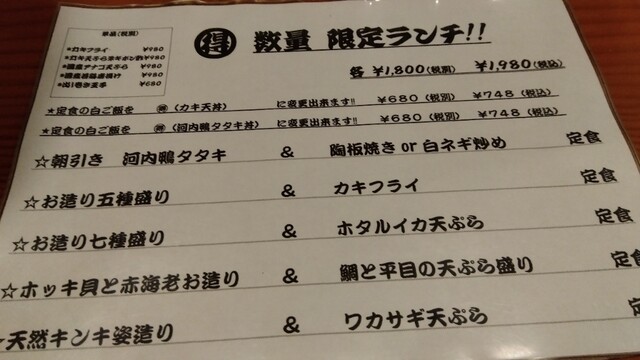 単品(税別)
★カキフライ ¥980
★カキ天ぷらネギポン酢¥980
★国産アナゴ天ぷら ¥980
¥980
★出し巻き玉子 ¥680
得 数量 限定ランチ!!
各 ¥1,800(税別) ¥1,980(税込)
★定食の白ご飯を (カキ天丼) に変更出来ます!! ¥680(税別) ¥748(税込)
★定食の白ご飯を (河内鴨タタキ丼) に変更出来ます!! ¥680(税別) ¥748(税込)
☆朝引き 河内鴨タタキ & 陶板焼きor白ネギ炒め 定食
☆お造り五種盛り & カキフライ 定食
☆お造り七種盛り & ホタルイカ天ぷら 定食
☆ホッキ貝と赤海老お造り & 鯛と平目の天ぷら盛り 定食
天然キンキ姿造り & ワカサギ天ぷら